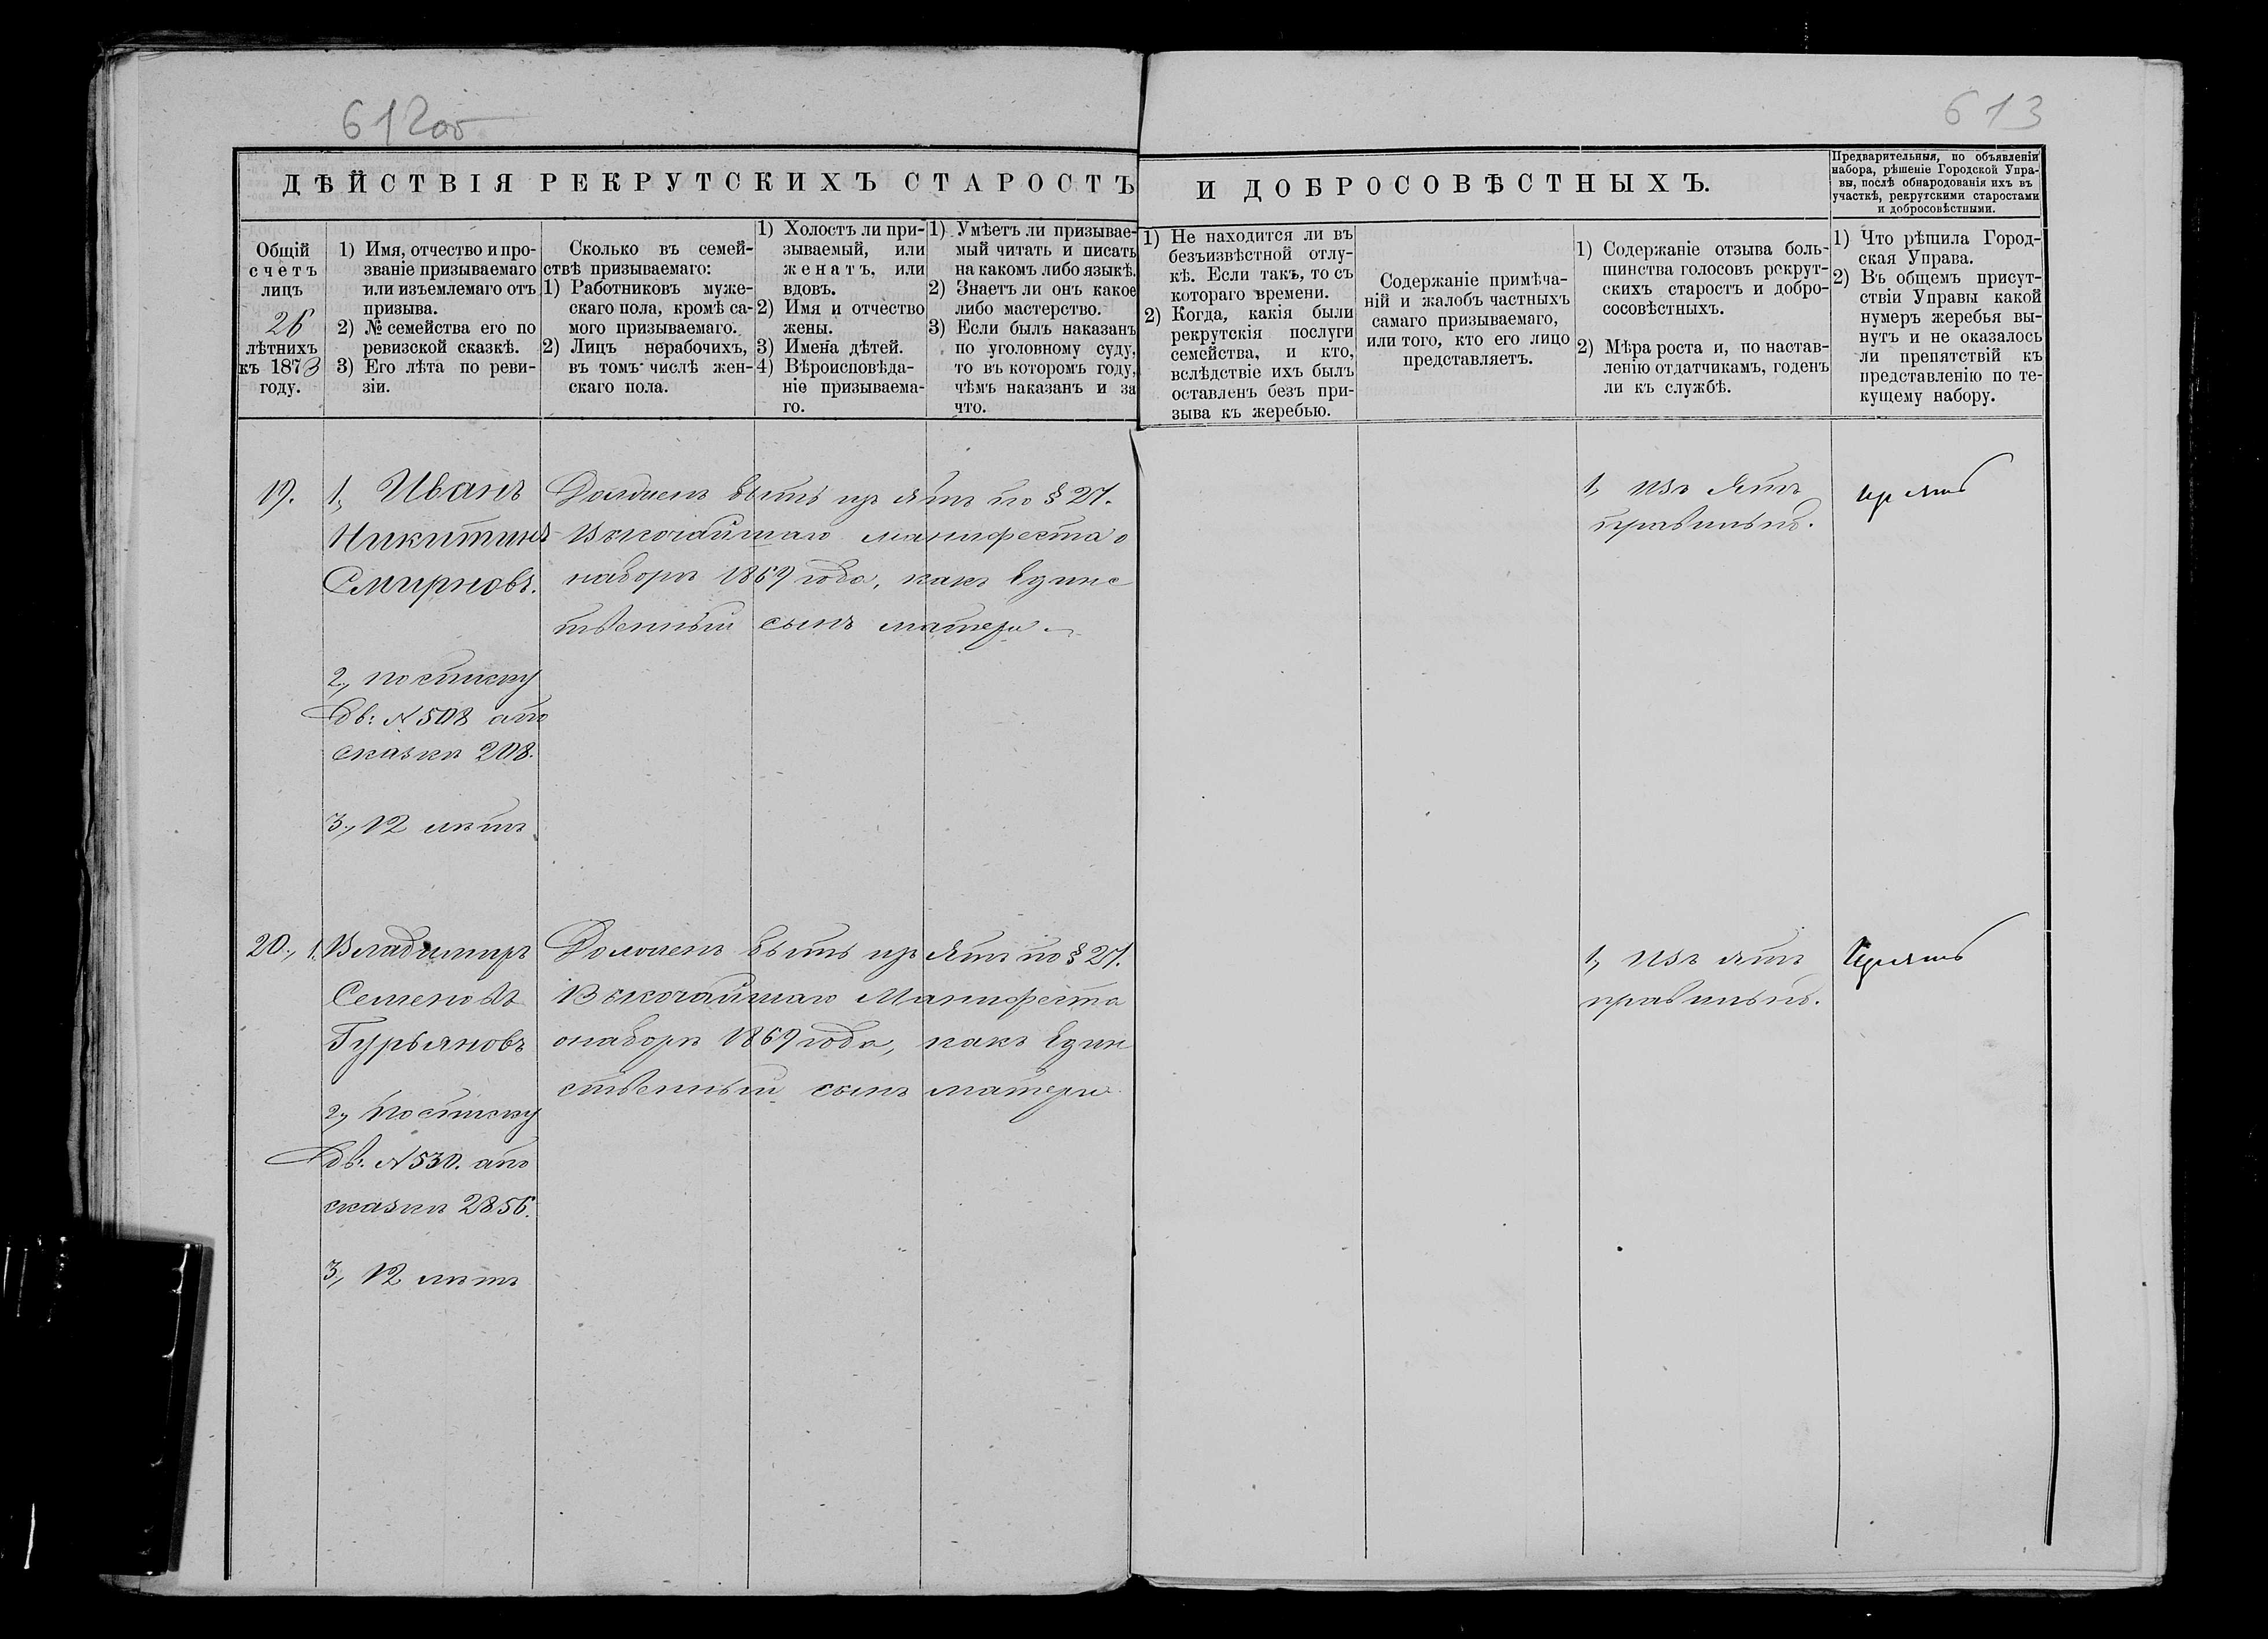 612об
613
ДѢЙСТВІЯ РЕКРУТСКИХЪ СТАРОСТЪ
И ДОБРОСОВѢСТНЫХЪ.
Предварительныя, по объявленіи
набора, рѣшеніе Городской Упра-
вы, послѣ обнародованія ихъ въ
участкѣ, рекрутскими старостами
и добросовѣстными.
Общій
счетъ
лицъ
26
лѣтнихъ
къ 1873
году.
1) Имя, отчество и про-
званіе призываемаго
или изъемлемаго отъ
призыва.
2) № семейства его по
ревизской сказкѣ.
3) Его лѣта по реви-
зіи.
Сколько въ семей-
ствѣ призываемаго:
1) Работниковъ муже-
скаго пола, кромѣ са-
мого призываемаго.
2) Лицъ нерабочихъ,
въ томъ числѣ жен-
скаго пола.
1) Холостъ ли при-
зываемый, или
женатъ, или
вдовъ.
2) Имя и отчество
жены.
3) Имена дѣтей.
4) Вѣроисповѣда-
ніе призываема-
го.
1) Умѣетъ ли призывае-
мый читать и писать
на какомъ либо языкѣ.
2) Знаетъ ли онъ какое
либо мастерство.
3) Если былъ наказанъ
по уголовному суду,
то въ которомъ году,
чѣмъ наказанъ и за
что.
1) Не находится ли въ
безъизвѣстной отлу-
кѣ. Если такъ, то съ
котораго времени.
2) Когда, какія были
рекрутскія послуги
семейства, и кто,
вслѣдствіе ихъ былъ
оставленъ безъ при-
зыва къ жеребью.
Содержаніе примѣча-
ній и жалобъ частныхъ
самаго призываемаго,
или того, кто его лицо
представляетъ.
1) Содержаніе отзыва боль-
шинства голосовъ рекрут-
скихъ старостъ и добро-
сосовѣстныхъ.
2) Мѣра роста и, по настав-
ленію отдатчикамъ, годенъ
ли къ службѣ.
1) Что рѣшила Город-
ская Управа.
2) Въ общемъ присут-
ствіи Управы какой
нумеръ жеребья вы-
нутъ и не оказалось
ли препятствій къ
представленію по те-
кущему набору.
19. 1, Иванъ
Никитинъ
Смирновъ.
2, по списку
дв: № 508 а по
сказкѣ 208.
3, 12 лѣтъ
Долженъ быть изъятъ по § 27.
Высочайшаго манифеста о
наборѣ 1869 года, какъ Единс
твенный сынъ матери
1, Изъятъ
правильно.
20., 1. Владимиръ
Семеновъ
Гурьяновъ
2, По списку
дв: № 530. а по
сказкѣ 2856.
3, 12 лѣтъ
Долженъ быть изъятъ по § 27.
Высочайшаго Манифеста
о наборѣ 1869 года, какъ Един
ственный сынъ матери
1, Изъятъ
правильно.